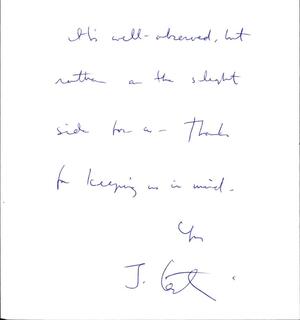 It's well-observed, but
rather on the slight
side for us - Thanks
for keeping us in mind.
Yrs
J.